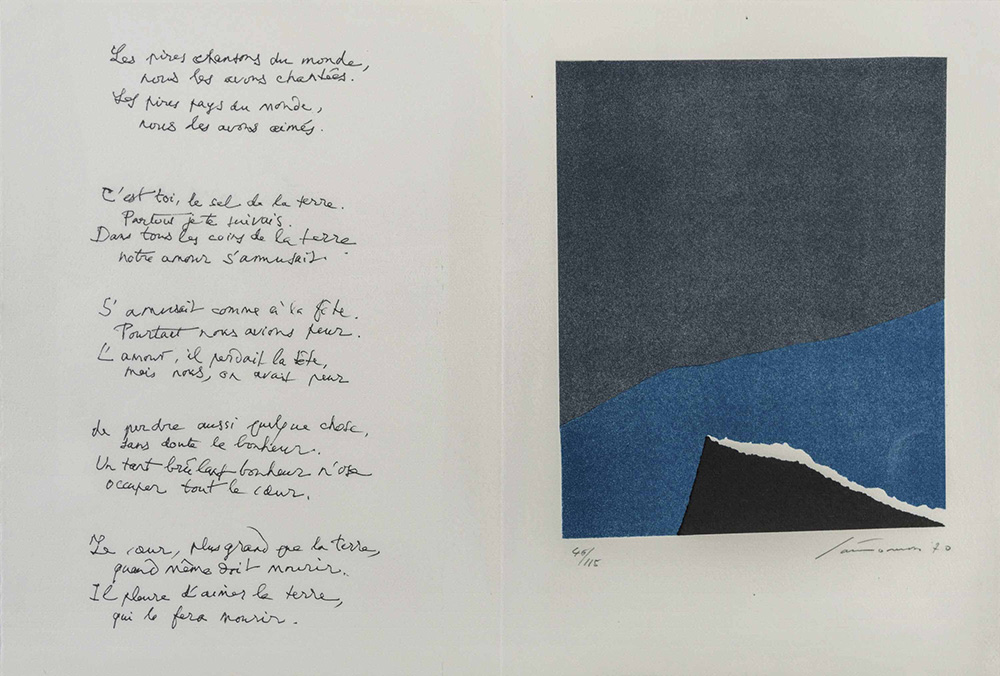 Les pires chansons du monde,
nous les avons chantées.
Les pires pays du monde,
nous les avons aimés.
C'est toi, le sel de la terre.
Partout je te suivais.
Dans tous les coins de la terre
notre amour s'amusait.
S'amusait comme à la fête.
Pourtant nous avions peur.
L'amour, il perdait la tête,
mais nous, on avait peur
de perdre aussi quelque chose,
sans doute le bonheur.
Un tant brûlant bonheur n'ose
occuper tout le cœur.
Le cœur, plus grand que la terre,
quand même doit mourir.
Il pleure d'aimer la terre,
qui le fera mourir.
45/115
70